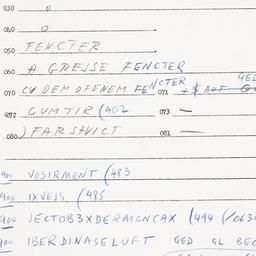 030 o
040 o
050 FENCTER
060 A GRESSE FENCTER
070 CU DEM OFENEM FENCTER 071 + $ BUT GED
072 GUMTIR (402 073 —
080 ) FARSTVICT 081 —
900 VOSIRMENT (483
900 IXVEJS (485
900 JECTOB3XDERMONCAX (494 (/063
900 IBERDINASELUFT GED GL BEC